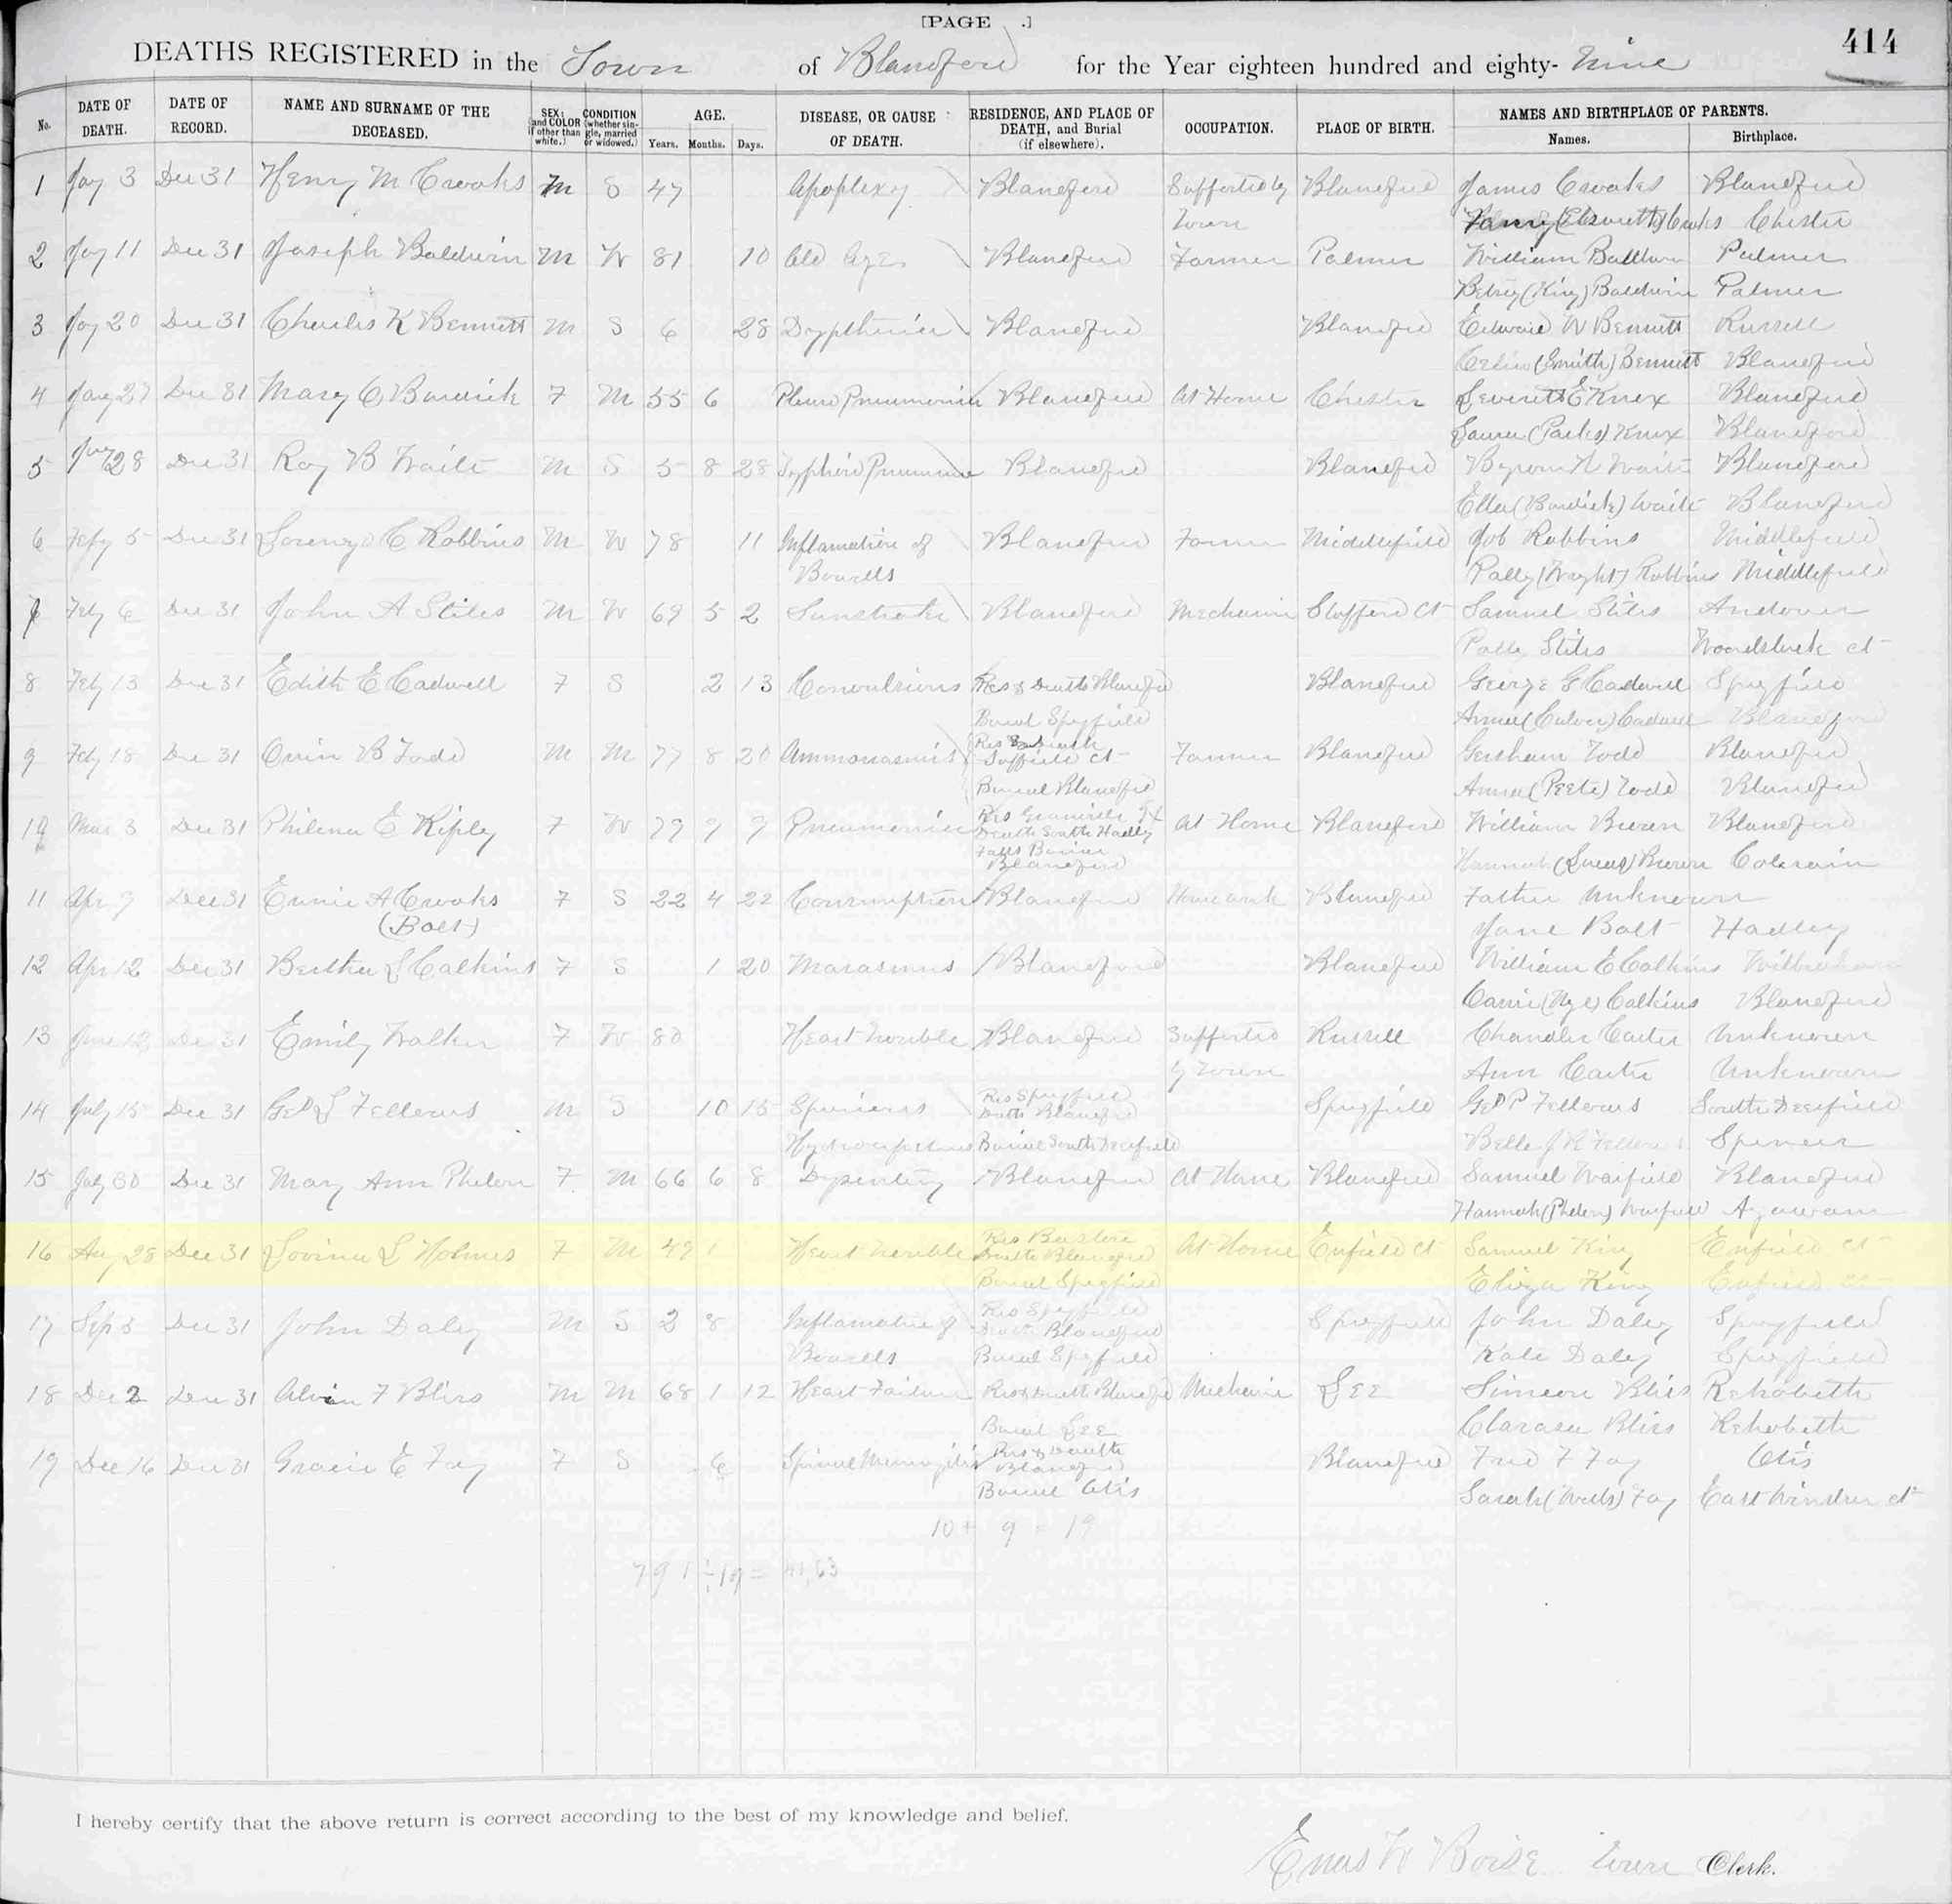 [PAGE .]
414
DEATHS REGISTERED in the Town of Blandford for the Year eighteen hundred and eighty-nine
No. DATE OF DEATH. DATE OF RECORD. NAME AND SURNAME OF THE DECEASED. SEX; (and COLOR if other than white.) CONDITION (whether single, married or widowed.) AGE. Years. Months. Days. DISEASE, OR CAUSE OF DEATH. RESIDENCE, AND PLACE OF DEATH, and Burial (if elsewhere). OCCUPATION. PLACE OF BIRTH. NAMES AND BIRTHPLACE OF PARENTS. Names. Birthplace.
1 Jay 3 Dec 31 Henry M Crooks M S 47 Apoplexy Blandford Supported by Blandford James Crooks Blandford
Town Chester
2 Jay 11 Dec 31 Joseph Baldwin M W 81 10 Old Age Blandford Farmer Palmer William Baldwin Palmer
Betsey (King) Baldwin Palmer
3 Jay 20 Dec 31 Charles K Bennett M S 6 28 Blandford Blandford Edward W Bennett Russell
(Smith) Bennett Blandford
4 Jay 27 Dec 31 Mary C Burdick F M 55 6 Pleuro Pneumonia Blandford At Home Chester Leverett E Knox Blandford
Laura (Parks) Knox Blandford
5 Jay 28 Dec 31 Roy B Waite M S 5 8 28 Blandford Blandford Byron Waite Blandford
Ella (Burdick) Waite Blandford
6 Feby 5 Dec 31 Lorenzo C Robbins M W 78 11 Inflamation of Blandford Farmer Middlefield Job Robbins Middlefield
Bowells (Wright) Robbins Middlefield
7 Feby 6 Dec 31 John A Stiles M W 69 5 2 Sunstroke Blandford Mechanic Stafford Ct Samuel Stiles Andover
Stiles Woodstock Ct
8 Feby 13 Dec 31 Edith E Cadwell F S 2 13 Convulsions Res & Death Blandford Blandford George G Cadwell Spryfield
Burial Spryfield Annie (Culver) Cadwell Blandford
9 Feby 18 Dec 31 Orrin B Todd M M 77 8 20 Res & Death Suffield Ct Farmer Blandford Gersham Todd Blandford
Burial Blandford Anna (Peets) Todd Blandford
10 Mar 3 Dec 31 Philena E Ripley F W 79 9 9 Pneumonia Death South Hadley At Home Blandford William Brown Blandford
Falls Burial
Blandford Hannah Brown Colerain
11 Apr 9 Dec 31 A Crooks F S 22 4 22 Consumption Blandford Housework Blandford Father Unknown
(Bolt) Jane Bolt Hadley
12 Apr 12 Dec 31 Bertha L Calkins F S 1 20 Marasmus Blandford Blandford William E Calkins Wilbraham
Carrie (Nye) Calkins Blandford
13 June 12 Dec 31 Emily Walker F W 80 Heart trouble Blandford Supported Russell Chandler Carter Unknown
by Town Ann Carter Unknown
14 July 15 Dec 31 Geo L Fellows M S 10 15 Res Spryfield Spryfield Geo P Fellows South Deerfield
Death Blandford
Burial South Deerfield Belle J R Fellows Spencer
15 July 30 Dec 31 Mary Ann Phelon F M 66 6 8 Dysentery Blandford At Home Blandford Samuel Warfield Blandford
Hannah (Phelon) Warfield Agawam
16 Aug 28 Dec 31 Lovina L Holmes F M 49 1 Heart trouble Res At Home Enfield Ct Samuel King Enfield Ct
Death Blandford
Burial Spryfield Eliza King Enfield Ct
17 Sep 3 Dec 31 John Daley M S 2 8 Inflamation of Res Spryfield Spryfield John Daley Spryfield
Death Blandford
Bowells Burial Spryfield Kate Daley Spryfield
18 Dec 2 Dec 31 Alvin F Bliss M M 68 1 12 Heart Failure Res & Death Blandford Mechanic Lee Simeon Bliss Rehobeth
Burial Lee Clarasa Bliss Rehobeth
19 Dec 16 Dec 31 Gracie E Fay F S 6 Spinal Menengitis Res & Death Blandford Blandford Fred F Fay Otis
Burial Otis Sarah (Wells) Fay East Windsor Ct
10 + 9 = 19
791 ÷ 19 = 41,63
I hereby certify that the above return is correct according to the best of my knowledge and belief.
Enos W Boise Town Clerk.